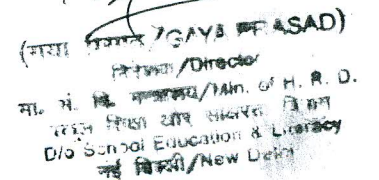 (गया प्रसाद/GAYA PRASAD)
निदेशक/Director
मा. सं. वि. मन्त्रालय/Min. of H. R. D.
स्कूल शिक्षा और साक्षरता विभाग
D/o School Education & Literacy
नई दिल्ली/New Delhi